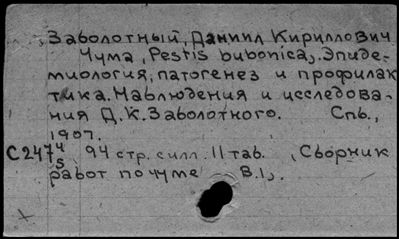 Заболотный, Даниил Кириллович
Чума, Pestis bubonica, Эпиде-
миология, патогенез и профилак
тика. Наблюдения и исследова-
ния Д.К. Заболотного. Спб.,
1907.
С247 4/5 94 стр. илл. 11 таб. , Сборник
работ по чуме В.1,.